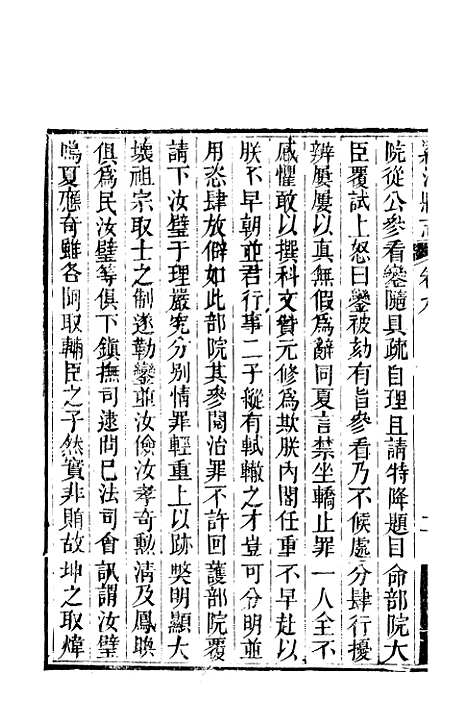 院從公參看鑾隨具疏自理且請特降題目命部院大
臣覆試上怒曰鑾被劾有旨參看乃不候處分肆行擾
辨屢屢以真無假為辭同夏言禁坐轎止罪一人全不
感懼敢以撰科文贊元修為欺朕內閣任重不早赴以
朕不早朝並君行事二子縱有軾轍之才豈可分明並
用恣肆放僻如此部院其參閱治罪不許回護部院覆
請下汝璧于理嚴究分別情罪輕重上以跡獘明顯大
壞祖宗取士之制遂勒鑾並汝儉汝孝奇勳清及鳳暎
俱為民汝璧等俱下鎮撫司逮問巳法司會訊謂汝璧
鳴夏應奇雖各阿取輔臣之子然實非賄故坤之取煒